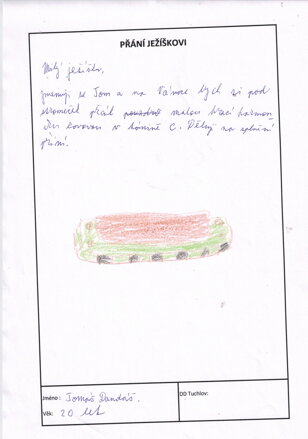 PŘÁNÍ JEŽÍŠKOVI
Milý ježíšku,
jmenuji se Tom a na Vánoce bych si pod
stromeček přál malou
kovovou v tónině C. Děkuji za splnění
přání.
Jméno: Tomáš Dandáš.
Věk: 20 let
DD Tuchlov: